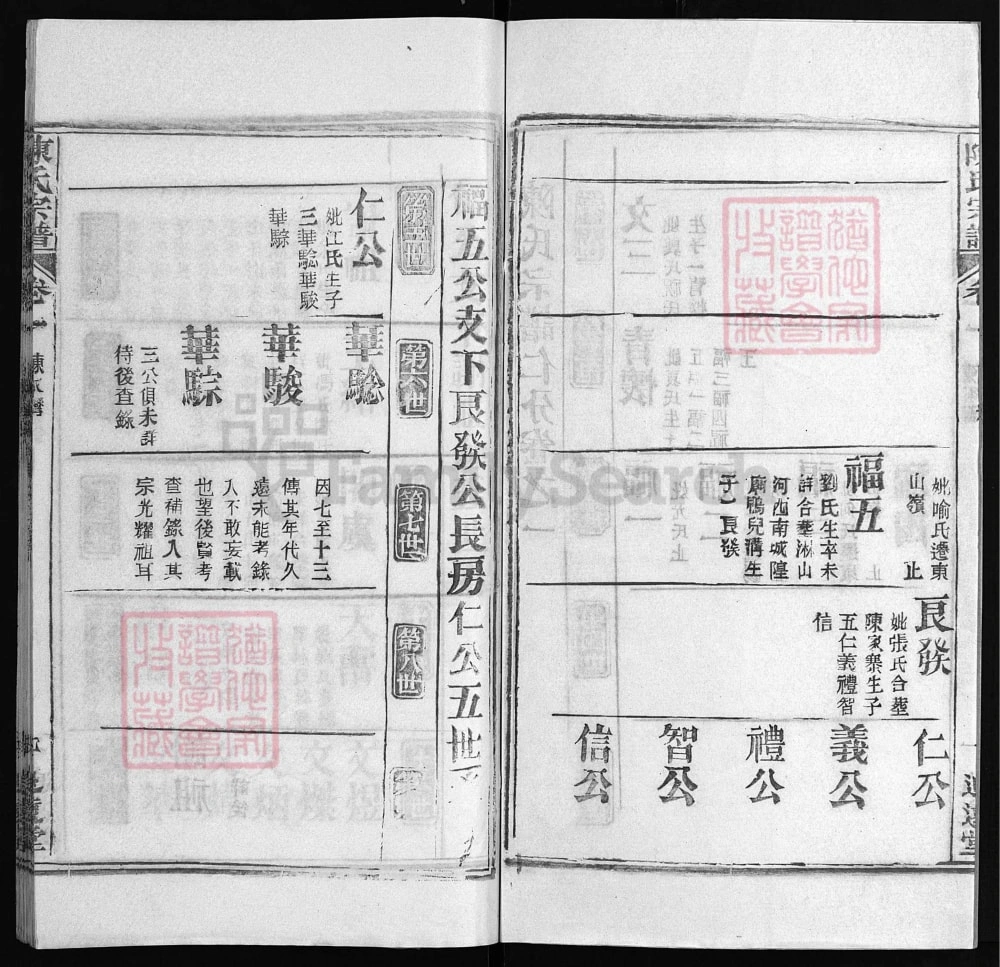 陳氏宗譜
妣喻氏遷東
山嶺 止
福五
劉氏生卒未
詳合塟淋山
河西南城隍
廟鵰兒溝生
子一良發
良發
妣張氏合塟
陳家寨生子
五仁義禮智
信
仁公
義公
禮公
智公
信公
福五公支下良發公長房仁公五世
第五世
第六世
第七世
第八世
仁公
妣江氏生子
三華騐華駿
華騌
華騐
華駿
華騌
三公俱未詳
待後查錄
因七至十三
傳其年代久
遠未能考錄
入不敢妄載
也望後賢考
查補錄入其
宗光耀祖耳
陳氏宗譜
卷一
FamilySearch